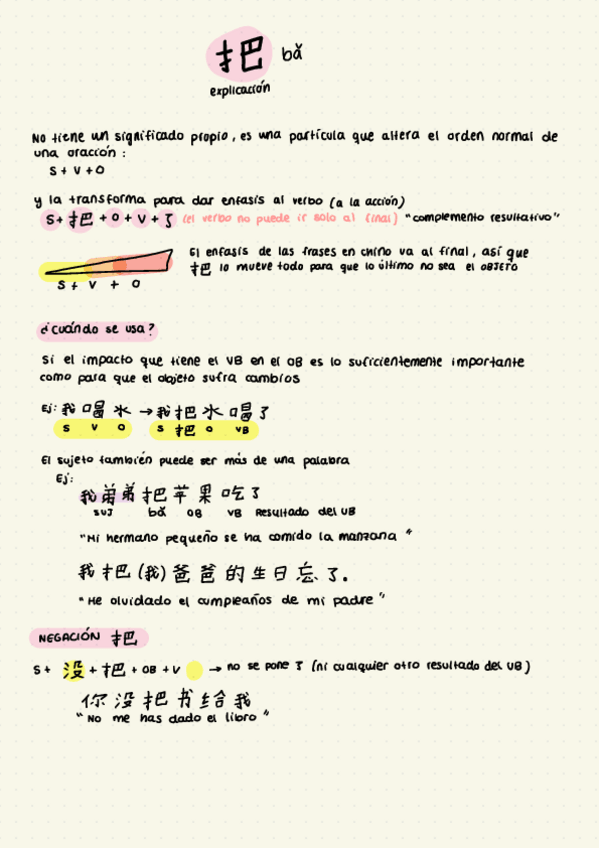 把 bǎ
explicación
No tiene un significado propio, es una partícula que altera el orden normal de
una oración:
S + V + O
y la transforma para dar enfasis al verbo (a la acción)
S + 把 + O + V + 了 (el verbo no puede ir solo al final) "complemento resultativo"
El enfasis de las frases en chino va al final, así que
把 lo mueve todo para que lo último no sea el OBJETO
S + V + O
¿Cuándo se usa?
Si el impacto que tiene el VB en el OB es lo suficientemente importante
como para que el objeto sufra cambios
Ej: 我喝水 → 我把水喝了
S V O S 把 O VB
El sujeto también puede ser más de una palabra
Ej:
我弟弟把苹果吃了
SUJ bǎ OB VB Resultado del VB
"Mi hermano pequeño se ha comido la manzana"
我把(我)爸爸的生日忘了.
"He olvidado el cumpleaños de mi padre"
NEGACIÓN 把
S + 没 + 把 + OB + V → no se pone 了 (ni cualquier otro resultado del VB)
你没把书给我
"No me has dado el libro"